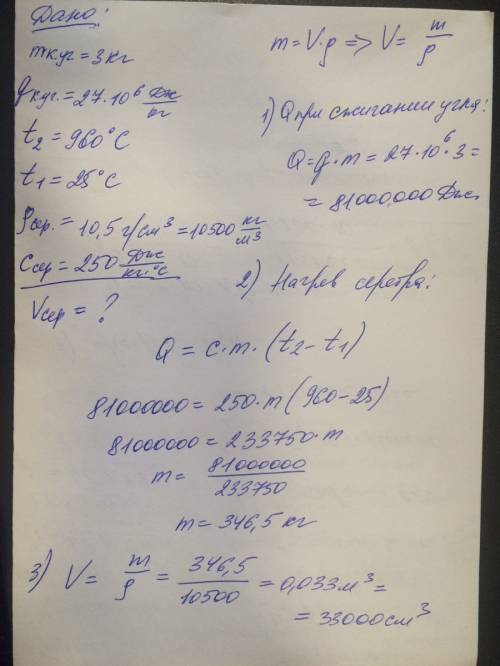 Дано:
mк.уг = 3 кг
qк.уг. = 27·10⁶ Дж/кг
t₂ = 960°C
t₁ = 25°C
ρсер. = 10,5 г/см³ = 10500 кг/м³
Cсер = 250 Дж/кг·°C
Vсер = ?
m = V·ρ => V = m/ρ
1) Q при сжигании угля:
Q = q·m = 27·10⁶·3 =
= 81000,000 Дж
2) Нагрев серебра:
Q = c·m·(t₂ - t₁)
81000000 = 250·m(960-25)
81000000 = 233750·m
m = 81000000/233750
m = 346,5 кг
3) V = m/ρ = 346,5/10500 = 0,033 м³ =
= 33000 см³